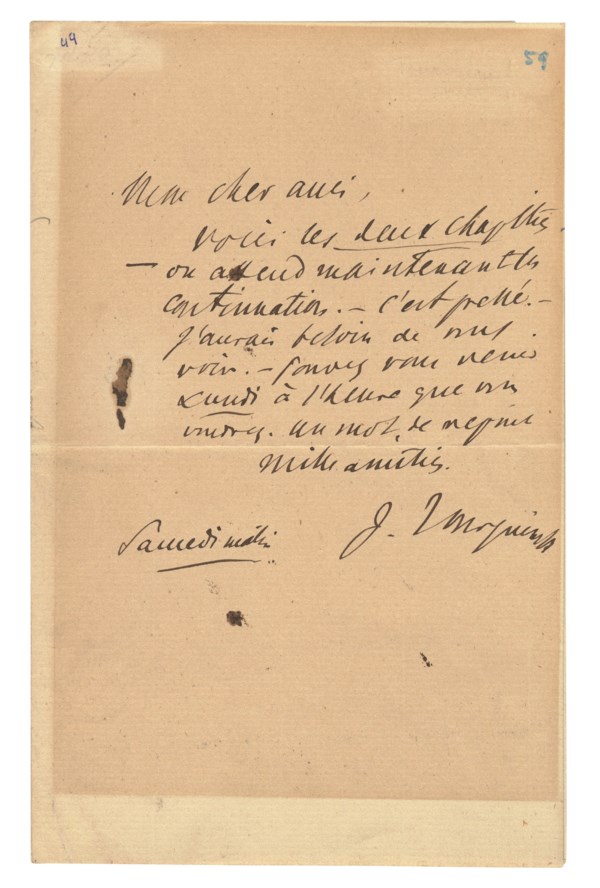 44
59
Mon cher ami,
voici les deux chapitres.
— on attend maintenant les
continuations. — C'est pressé. —
J'aurais besoin de vous
voir. — Pouvez vous venir
Lundi à l'heure que vous
voudrez. Un mot de réponse
Mille amitiés.
J. Tourguéneff
Samedi matin